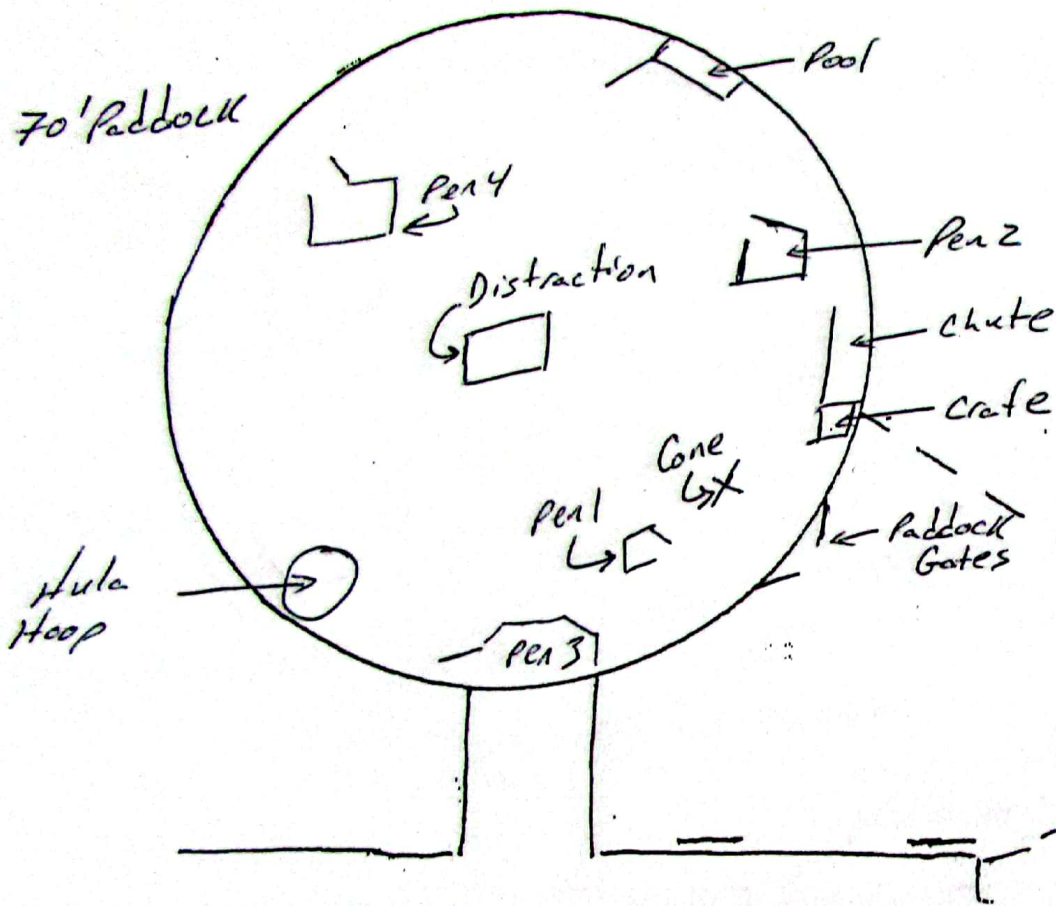 Pool
70' Paddock
Pen 4
Pen 2
Distraction
Chute
Crate
Cone
Pen 1
Paddock
Gates
Hula
Hoop
Pen 3